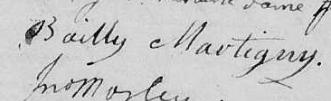 Dame
Bailly Martigny.
Jno Morley